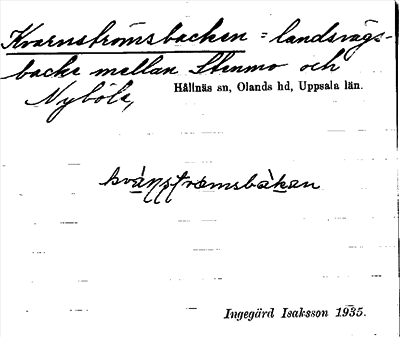 Kvarnströmsbacken = landsvägs-
backe mellan Stenmo och
Nyböle,
Hållnäs sn, Olands hd, Uppsala län.
Ingegärd Isaksson 1935.